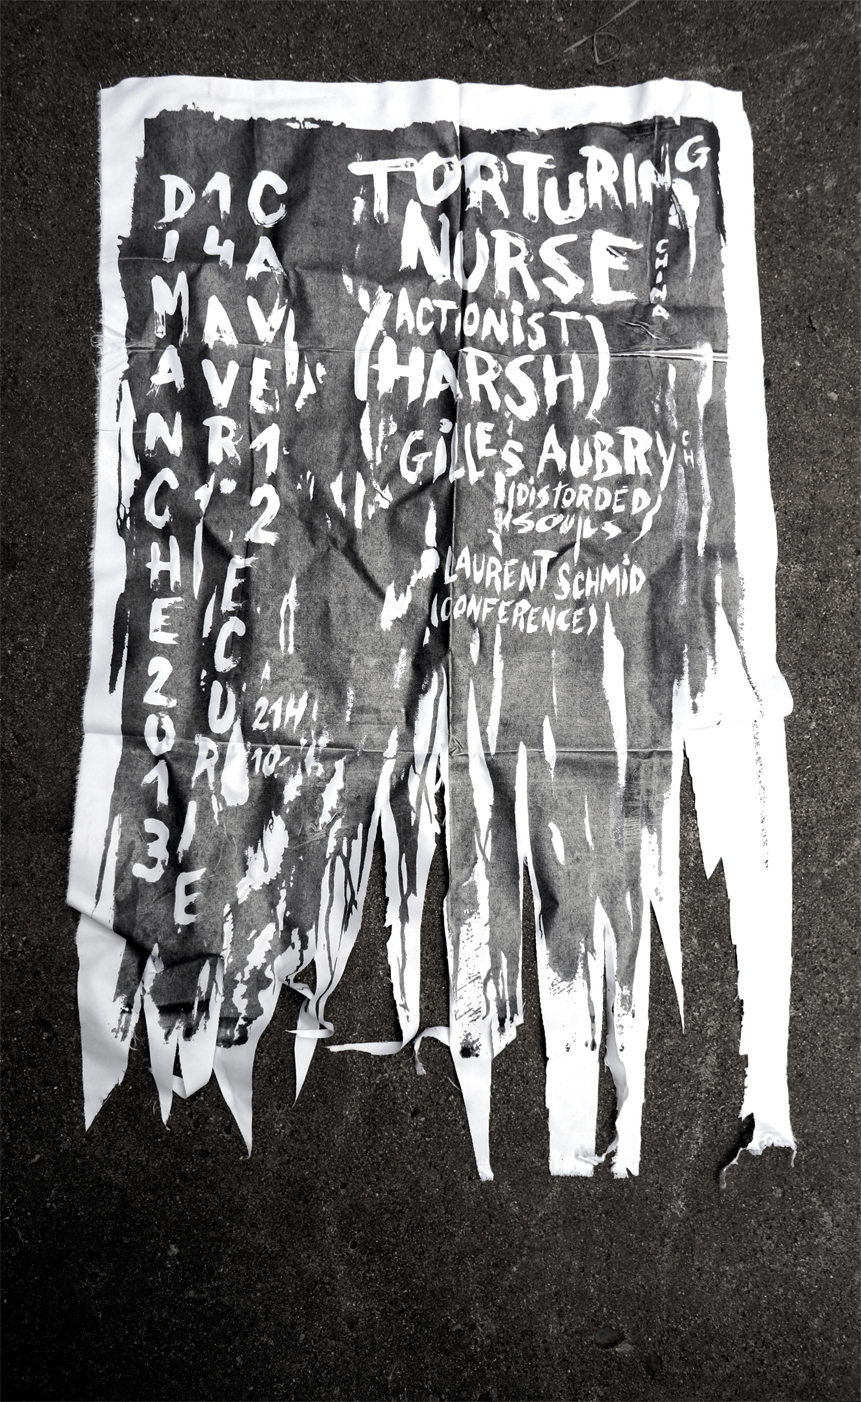 DIMANCHE 2013
14 AVR.
ECURIE
CAVE 12
21H
10.-
TORTURING
NURSE
CHINA
(ACTIONIST)
(HARSH)
GILLES AUBRY CH
(DISTORDED
LAURENT SCHMID
(CONFERENCE)